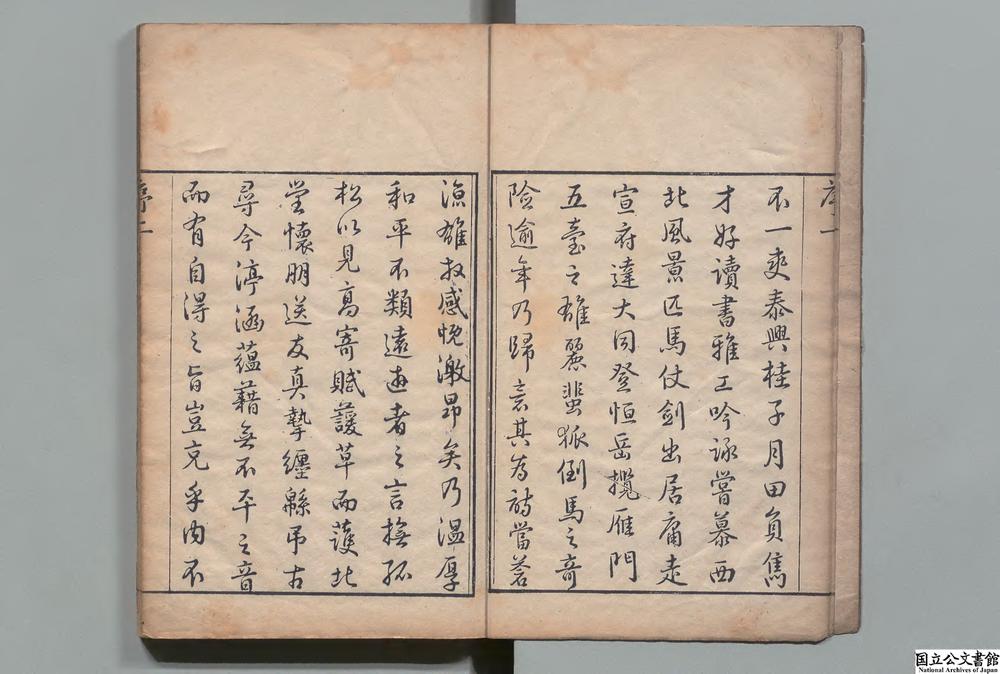 序一
不一爽泰興桂子月田負雋
才好讀書雅工吟詠嘗慕西
北風景匹馬仗劍出居庸走
宣府達大同登恒岳攬雁門
五臺之雄麗蜚狐倒馬之奇
險逾年乃歸意其為詩當蒼
涼雄放感慨激昂矣乃溫厚
和平不類遠遊者之言撫孤
松以見高寄賦萲草而護北
堂懷朋送友真摯纏緜弔古
尋今渟涵蘊藉無不平之音
而有自得之旨豈充乎內不
序二
国立公文書館
National Archives of Japan